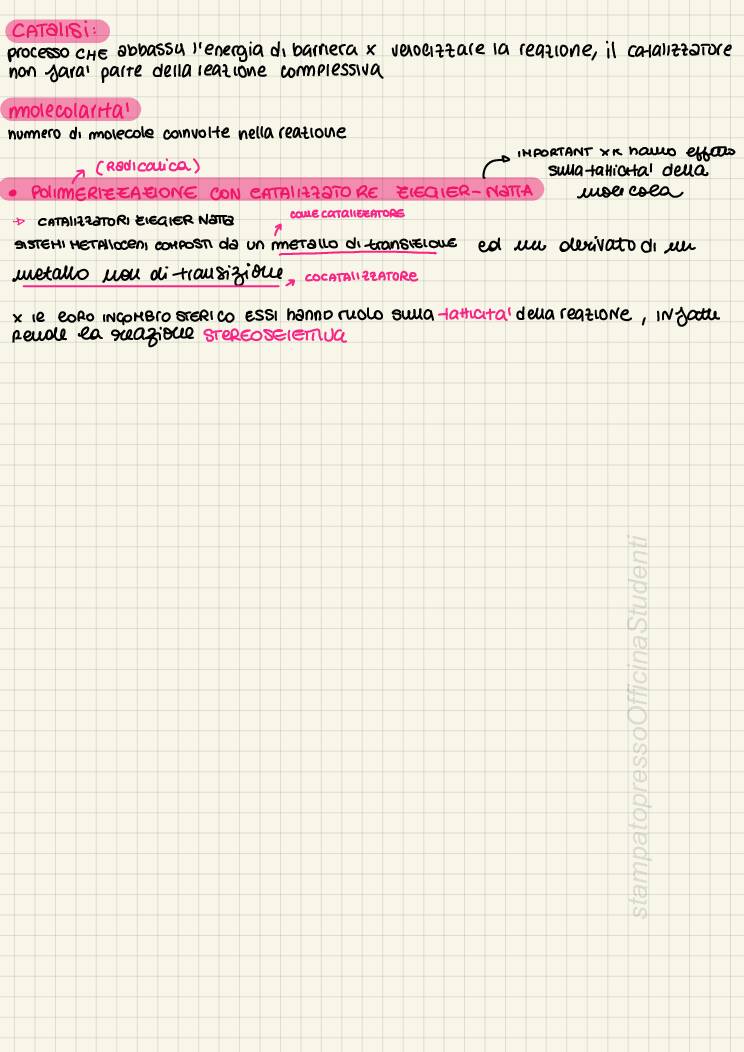 CATALISI:
processo CHE abbassa l'energia di barriera x velocizzare la reazione, il catalizzatore
non fara' parte della reazione complessiva
molecolarita'
numero di molecole coinvolte nella reazione
(Radicalica)
IMPORTANT xk hanno effetto
sulla tatticita' della
molecola
• POLIMERIZZAZIONE CON CATALIZZATORE ZIEGLER-NATTA
→ CATALIZZATORI ZIEGLER NATTA
COME CATALIZZATORE
SISTEMI METALLOCENI COMPOSTI da un metallo di transizione ed un derivato di un
metallo non di transizione → COCATALIZZATORE
x le loro INGOMBRO STERICO ESSI hanno ruolo sulla tatticita' della reazione, infatti
rende la reazione STEREOSELETTIVA
stampatopressoOfficinaStudenti